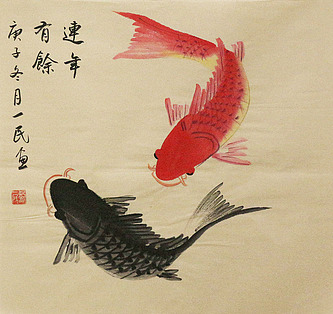 連年
有餘
庚子冬月一民画